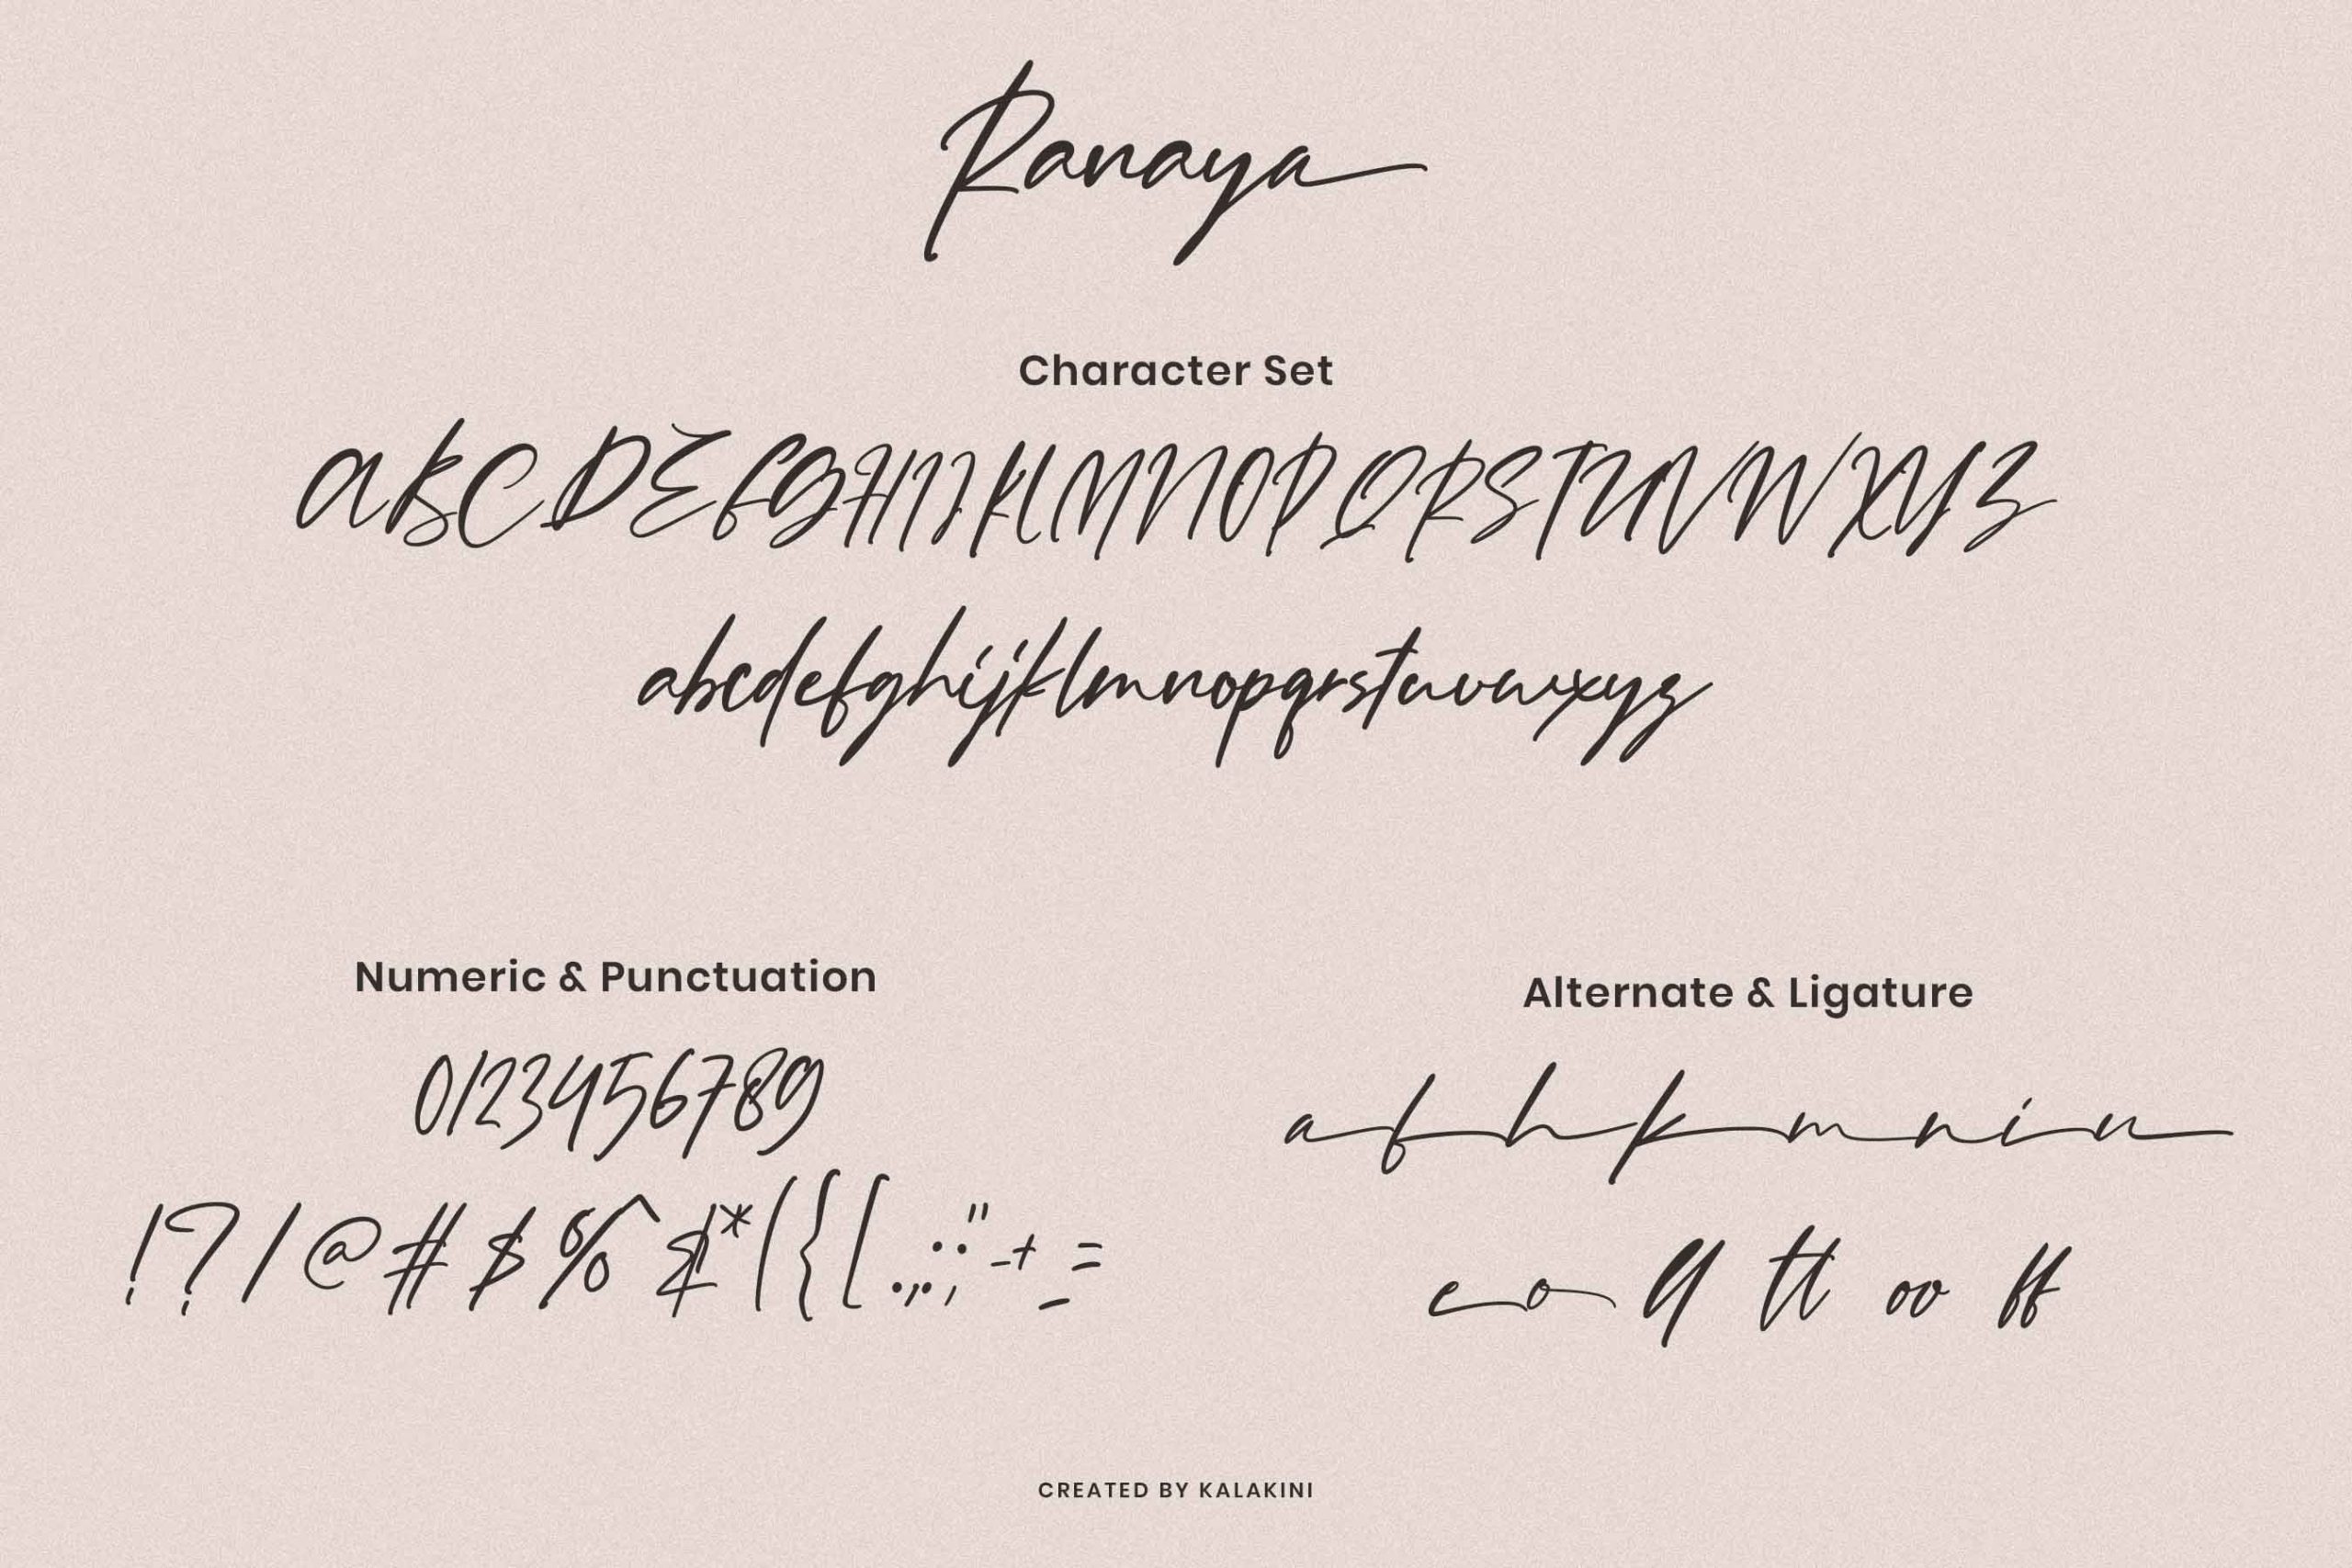 Ranaya
Character Set
ABCDEFGHIJKLMNOPQRSTUVWXYZ
abcdefghijklmnopqrstuvwxyz
Numeric & Punctuation
0123456789
!?/@#$%^&*({[.,..:;"-+_=
Alternate & Ligature
a f h k m n i u
e o ll tt oo ff
CREATED BY KALAKINI